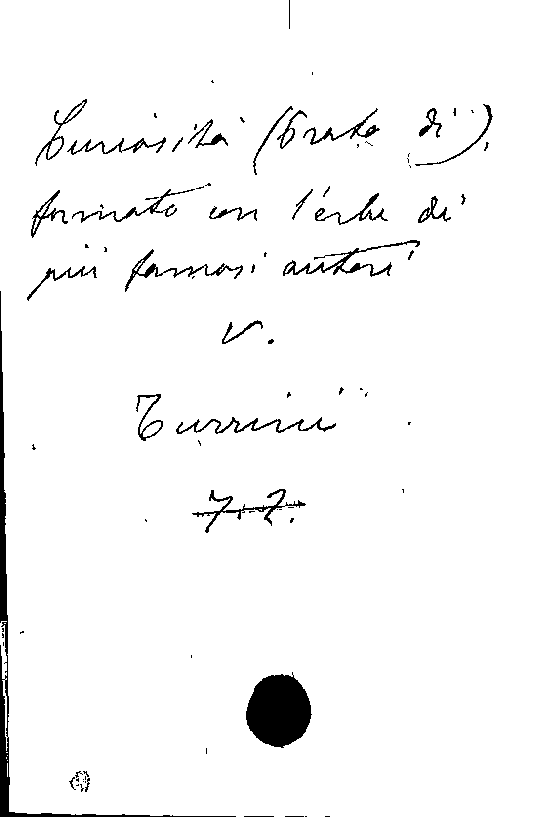 Curiosità (Prato di),
formato con l'erbe di
più famosi autori
V.
Turrini
7.2.